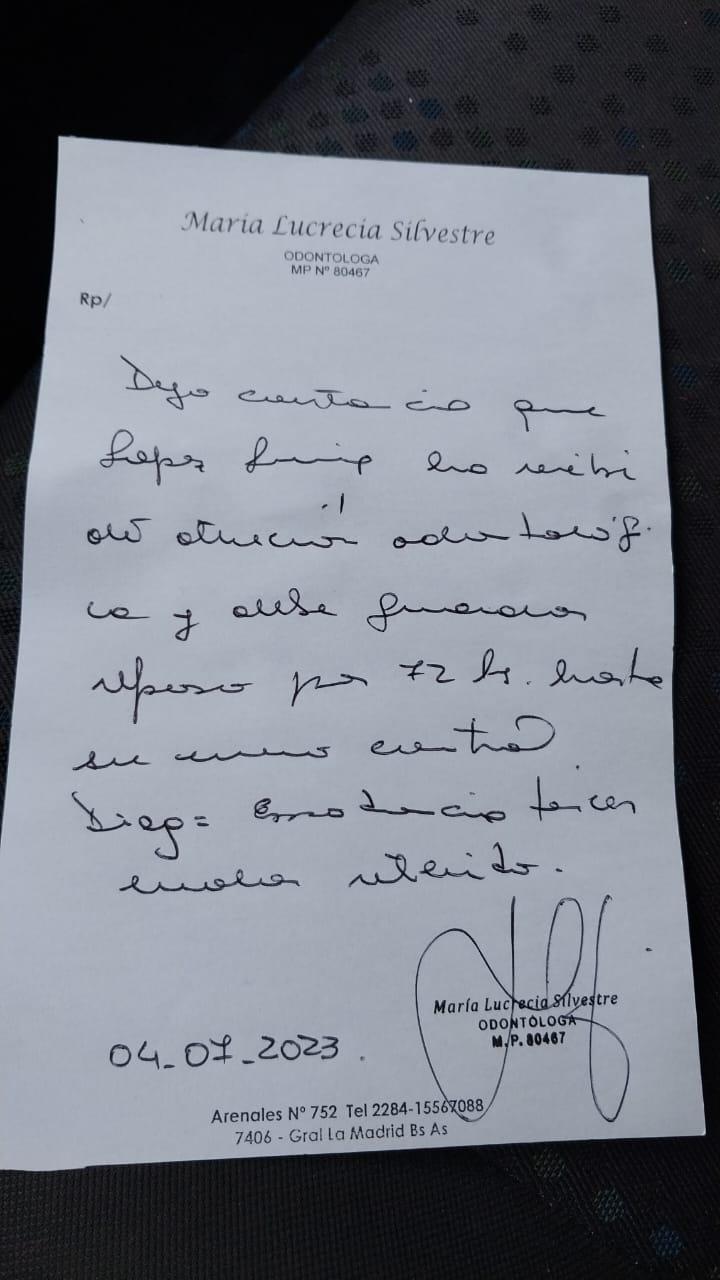 Maria Lucrecia Silvestre
ODONTOLOGA
MP Nº 80467
Rp/
Dejo constancia que
Lopez Luis ha recibi
do atención odontológ.
ca y debe guardar
reposo por 72 hs. hasta
su nuevo control
Diag= Exodoncia tercer
molar retenido.
María Lucrecia Silvestre
ODONTÓLOGA
M.P. 80467
04_07_2023.
Arenales Nº 752 Tel 2284-15567088
7406 - Gral La Madrid Bs As